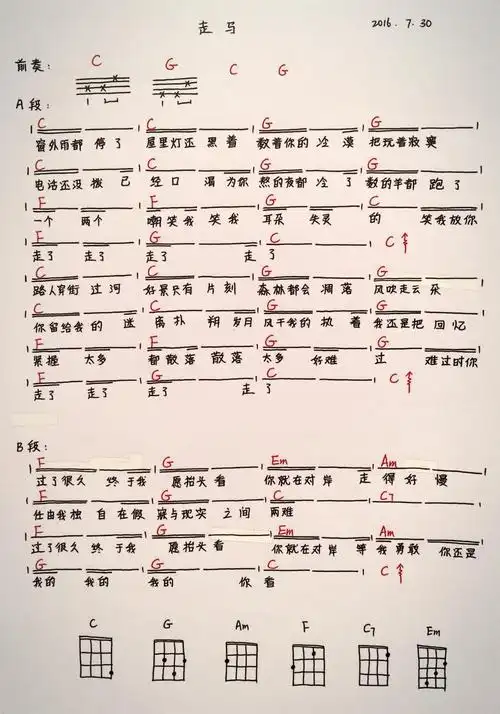 走马 2016. 7. 30
前奏: C G C G
A段:
C C G G
窗外雨都 停了 屋里灯还 黑着 数着你的 冷漠 把玩着寂寞
C C G G
电话还没 拨已 经口 渴为你 熬的夜都 冷了 数的羊都 跑了
F F G C
一个 两个 嘲笑我笑我 耳朵 失灵 的 笑我放你
F F G C C
走了 走了 走了 走了
C C G G
路人穿街 过河 好景只有 片刻 森林都会 凋落 风吹走云朵
C C G G
你留给我的 迷 离扑 朔岁月 风干我的 执着 我还是把 回忆
F F G G
紧握 太多 都散落散落 太多 好难 过 难过时你
F F G C C
走了 走了 走了 走了
B段:
F G Em Am
过了很久 终于我 愿抬头看 你就在对岸 走得好慢
F G C C7
任由我独 自在假 寐与现实 之间 两难
F G Em Am
过了很久 终于我 愿抬头看 你就在对岸 等我勇敢 你还是
G G C C
我的 我的 我的 你看
C G Am F C7 Em